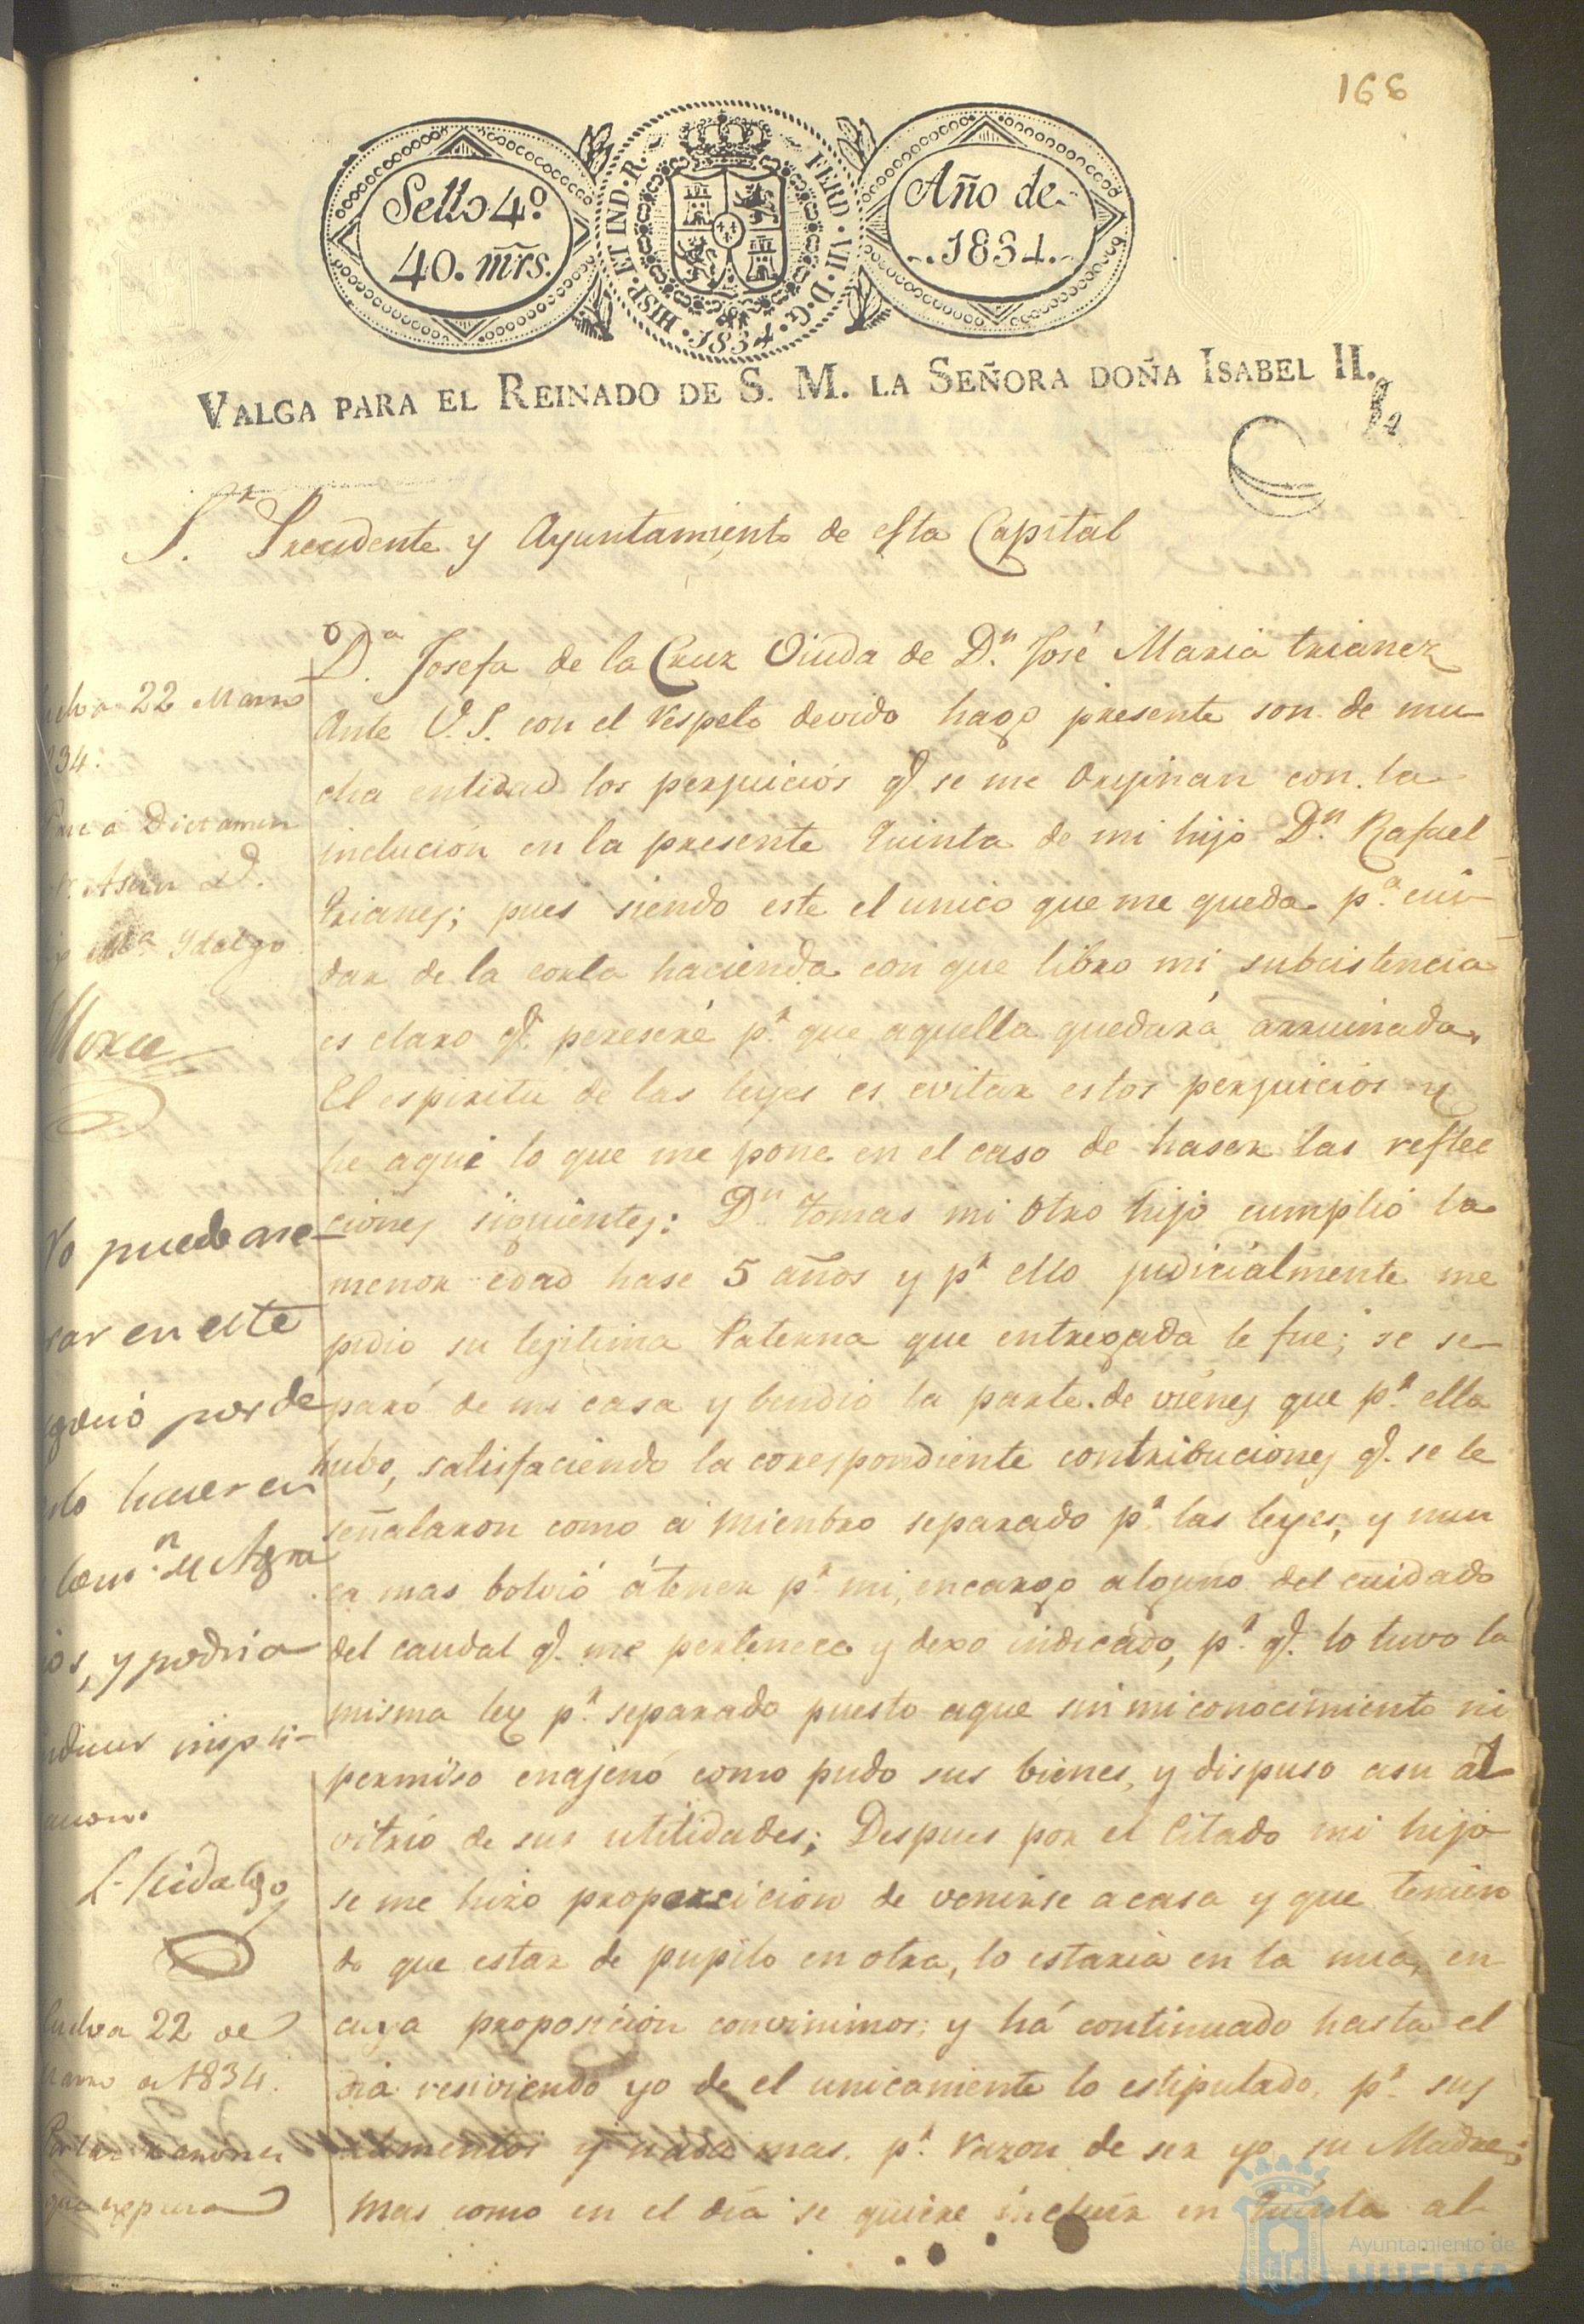 166
Sello 4º
40. mrs.
HISP. ET IND. R. FERD. VII. D. G. 1834.
Año de
1834.
VALGA PARA EL REINADO DE S. M. LA SEÑORA DOÑA ISABEL II.
Sr. Precidente y Ayuntamiento de esta Capital
Da. Josefa de la Cruz Viuda de Dn. José Maria trianez
Ante V.S. con el respeto devido hago presente son de mu-
cha entidad los perjuicios q. se me Orijinan con la
inclucion en la presente Quinta de mi hijo Dn. Rafael
trianes; pues siendo este el unico que me queda pa. cui-
dar de la corta hacienda con que libro mi subcistencia
es claro q. pereseré pr. que aquella quedará arruinada.
El espiritu de las leyes es evitar estos perjuicios y
he aqui lo que me pone en el caso de haser las reflec
ciones siguientes: Dn. tomas mi otro hijo cumplió la
menor edad hase 5 años y pr. ello judicialmente me
pidio su lejitima Paterna que entregada le fue; se se-
paró de mi casa y bendio la parte de vienes que pr. ella
hubo, satisfaciendo la correspondiente contribuciones q. se le
señalaron como a mienbro separado pr. las leyes, y nun
ca mas bolvió á tener pr. mi, encargo alguno del cuidado
del caudal q. me pertenece y dexo indicado, pr. q. lo tuvo la
misma ley pr. separado puesto aque sin mi conocimiento ni
permiso enajenó como pudo sus bienes, y dispuso asu al
vitrio de sus utilidades; Despues por el Citado mi hijo
se me hizo proporcicion de venirse a casa y que tenien
do que estar de pupilo en otra, lo estaria en la mia, en
cuya proposición convinimos; y há continuado hasta el
dia resiviendo yo de el unicamente lo estipulado pr. sus
alimentos y nada mas. pr. razon de ser yo su Madre;
mas como en el dia se quiere incluir en Quinta al
22 Marzo
34.
a Dictamen
Ma. Ydalgo
No puede me-
rar en este
por de
hacer en
de Agra
ios, y podrá
L. Hidalgo
22 de
Marzo de 1834.
Ayuntamiento de
HUELVA